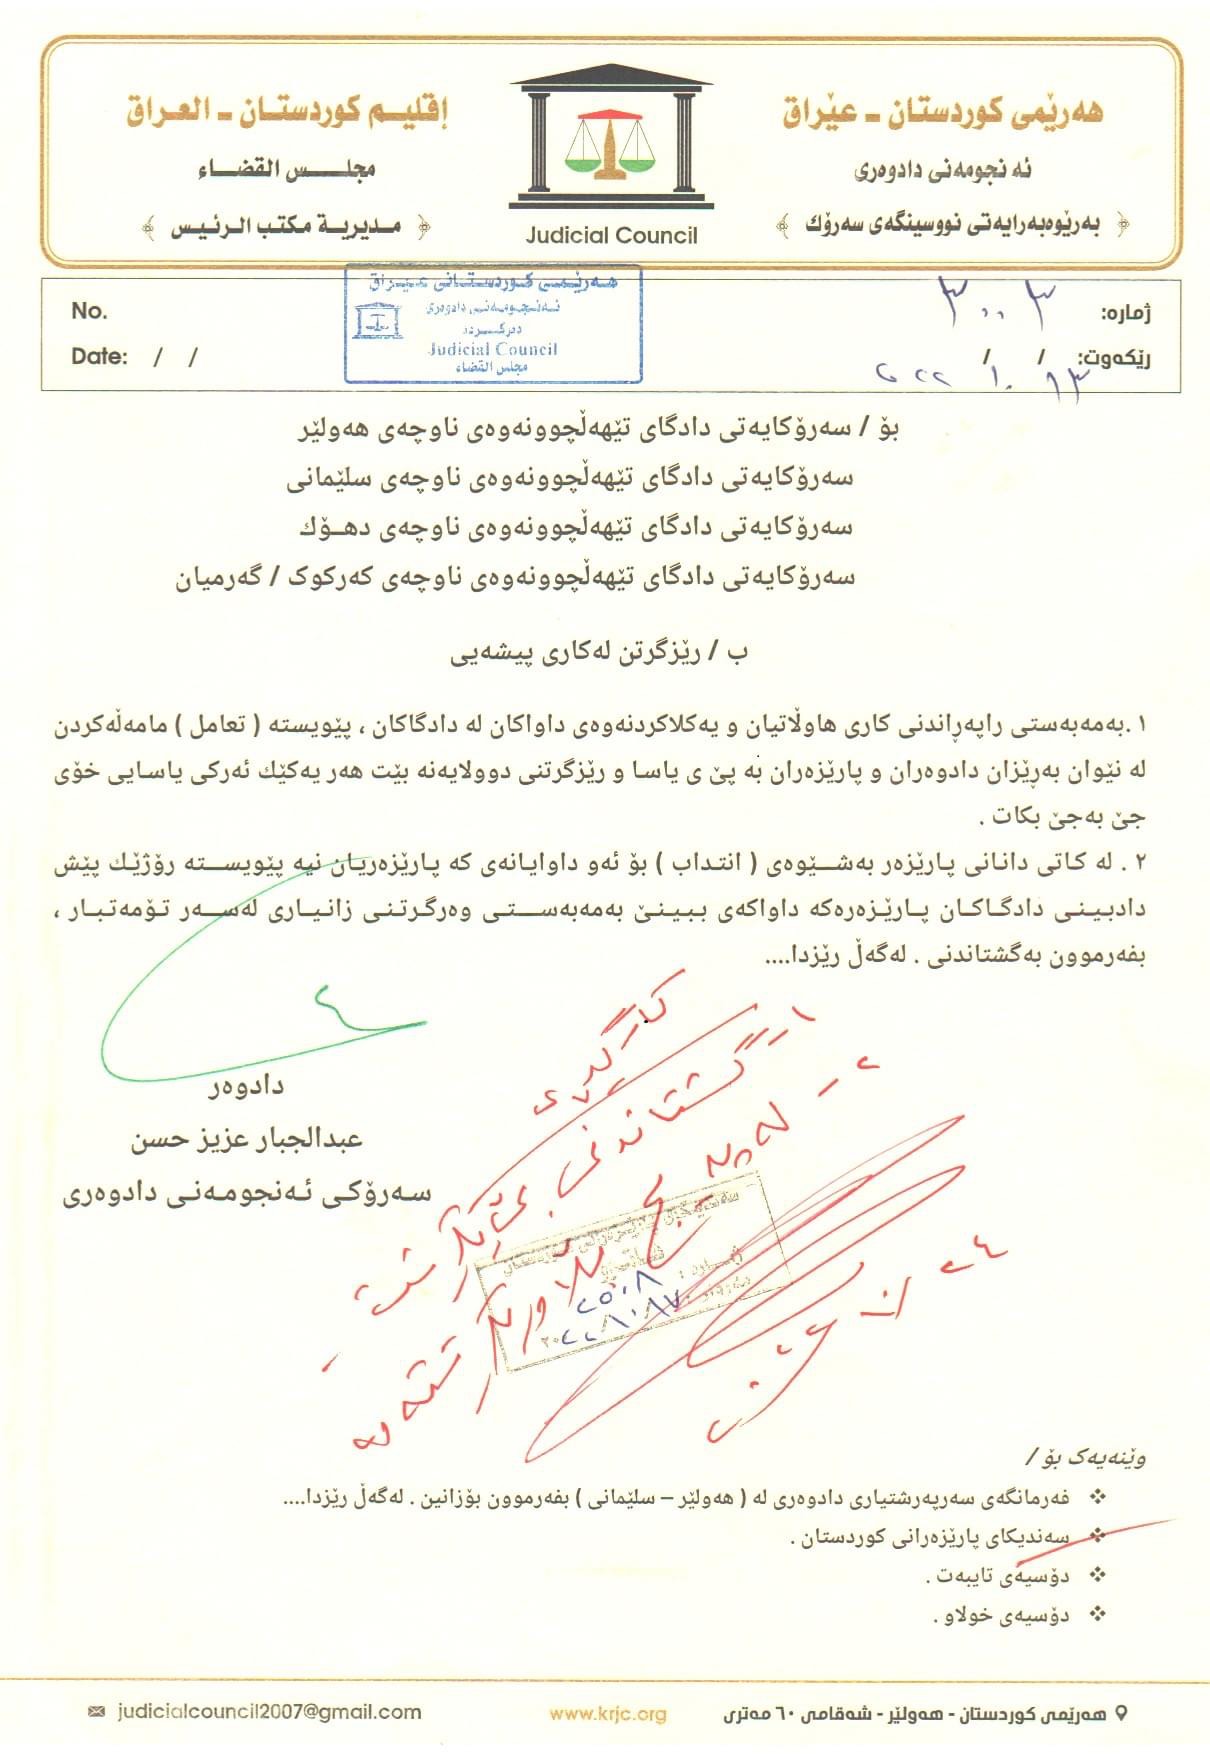 هەرێمی کوردستان - عێراق
ئەنجومەنی دادوەری
﴿ بەڕێوەبەرایەتی نووسینگەی سەرۆك ﴾
إقليم كوردستان - العراق
مجلس القضاء
﴿ مديرية مكتب الرئيس ﴾
Judicial Council
ژمارە: ٣٠٠٣
ڕێکەوت: ١٣ / ١٠ / ٢٠٢٢
No.
Date: / /
هەرێمی کوردستانی عێراق
ئەنجومەنی دادوەری
دەرکردە
Judicial Council
مجلس القضاء
بۆ / سەرۆکایەتی دادگای تێهەڵچوونەوەی ناوچەی هەولێر
سەرۆکایەتی دادگای تێهەڵچوونەوەی ناوچەی سلێمانی
سەرۆکایەتی دادگای تێهەڵچوونەوەی ناوچەی دهۆك
سەرۆکایەتی دادگای تێهەڵچوونەوەی ناوچەی کەرکوک / گەرمیان
ب / رێزگرتن لەکاری پیشەیی
١ .بەمەبەستی راپەڕاندنی کاری هاوڵاتیان و یەکلاکردنەوەی داواکان لە دادگاکان ، پێویستە ( تعامل ) مامەڵەکردن
لە نێوان بەڕێزان دادوەران و پارێزەران بە پێ ی یاسا و رێزگرتنی دوولایەنە بێت هەر یەکێك ئەرکی یاسایی خۆی
جێ بەجێ بکات .
٢ . لە کاتی دانانی پارێزەر بەشێوەی ( انتداب ) بۆ ئەو داوایانەی کە پارێزەریان نیە پێویستە رۆژێك پێش
دادبینی دادگاکان پارێزەرەکە داواکەی ببینێ بەمەبەستی وەرگرتنی زانیاری لەسەر تۆمەتبار ،
بفەرموون بەگشتاندنی . لەگەڵ رێزدا....
دادوەر
عبدالجبار عزیز حسن
سەرۆکی ئەنجومەنی دادوەری
وێنەیەک بۆ /
❖ فەرمانگەی سەرپەرشتیاری دادوەری لە ( هەولێر – سلێمانی ) بفەرموون بۆزانین . لەگەڵ رێزدا....
❖ سەندیکای پارێزەرانی کوردستان .
❖ دۆسیەی تایبەت .
❖ دۆسیەی خولاو .
هەرێمی کوردستان - هەولێر - شەقامی ٦٠ مەتری
www.krjc.org
judicialcouncil2007@gmail.com